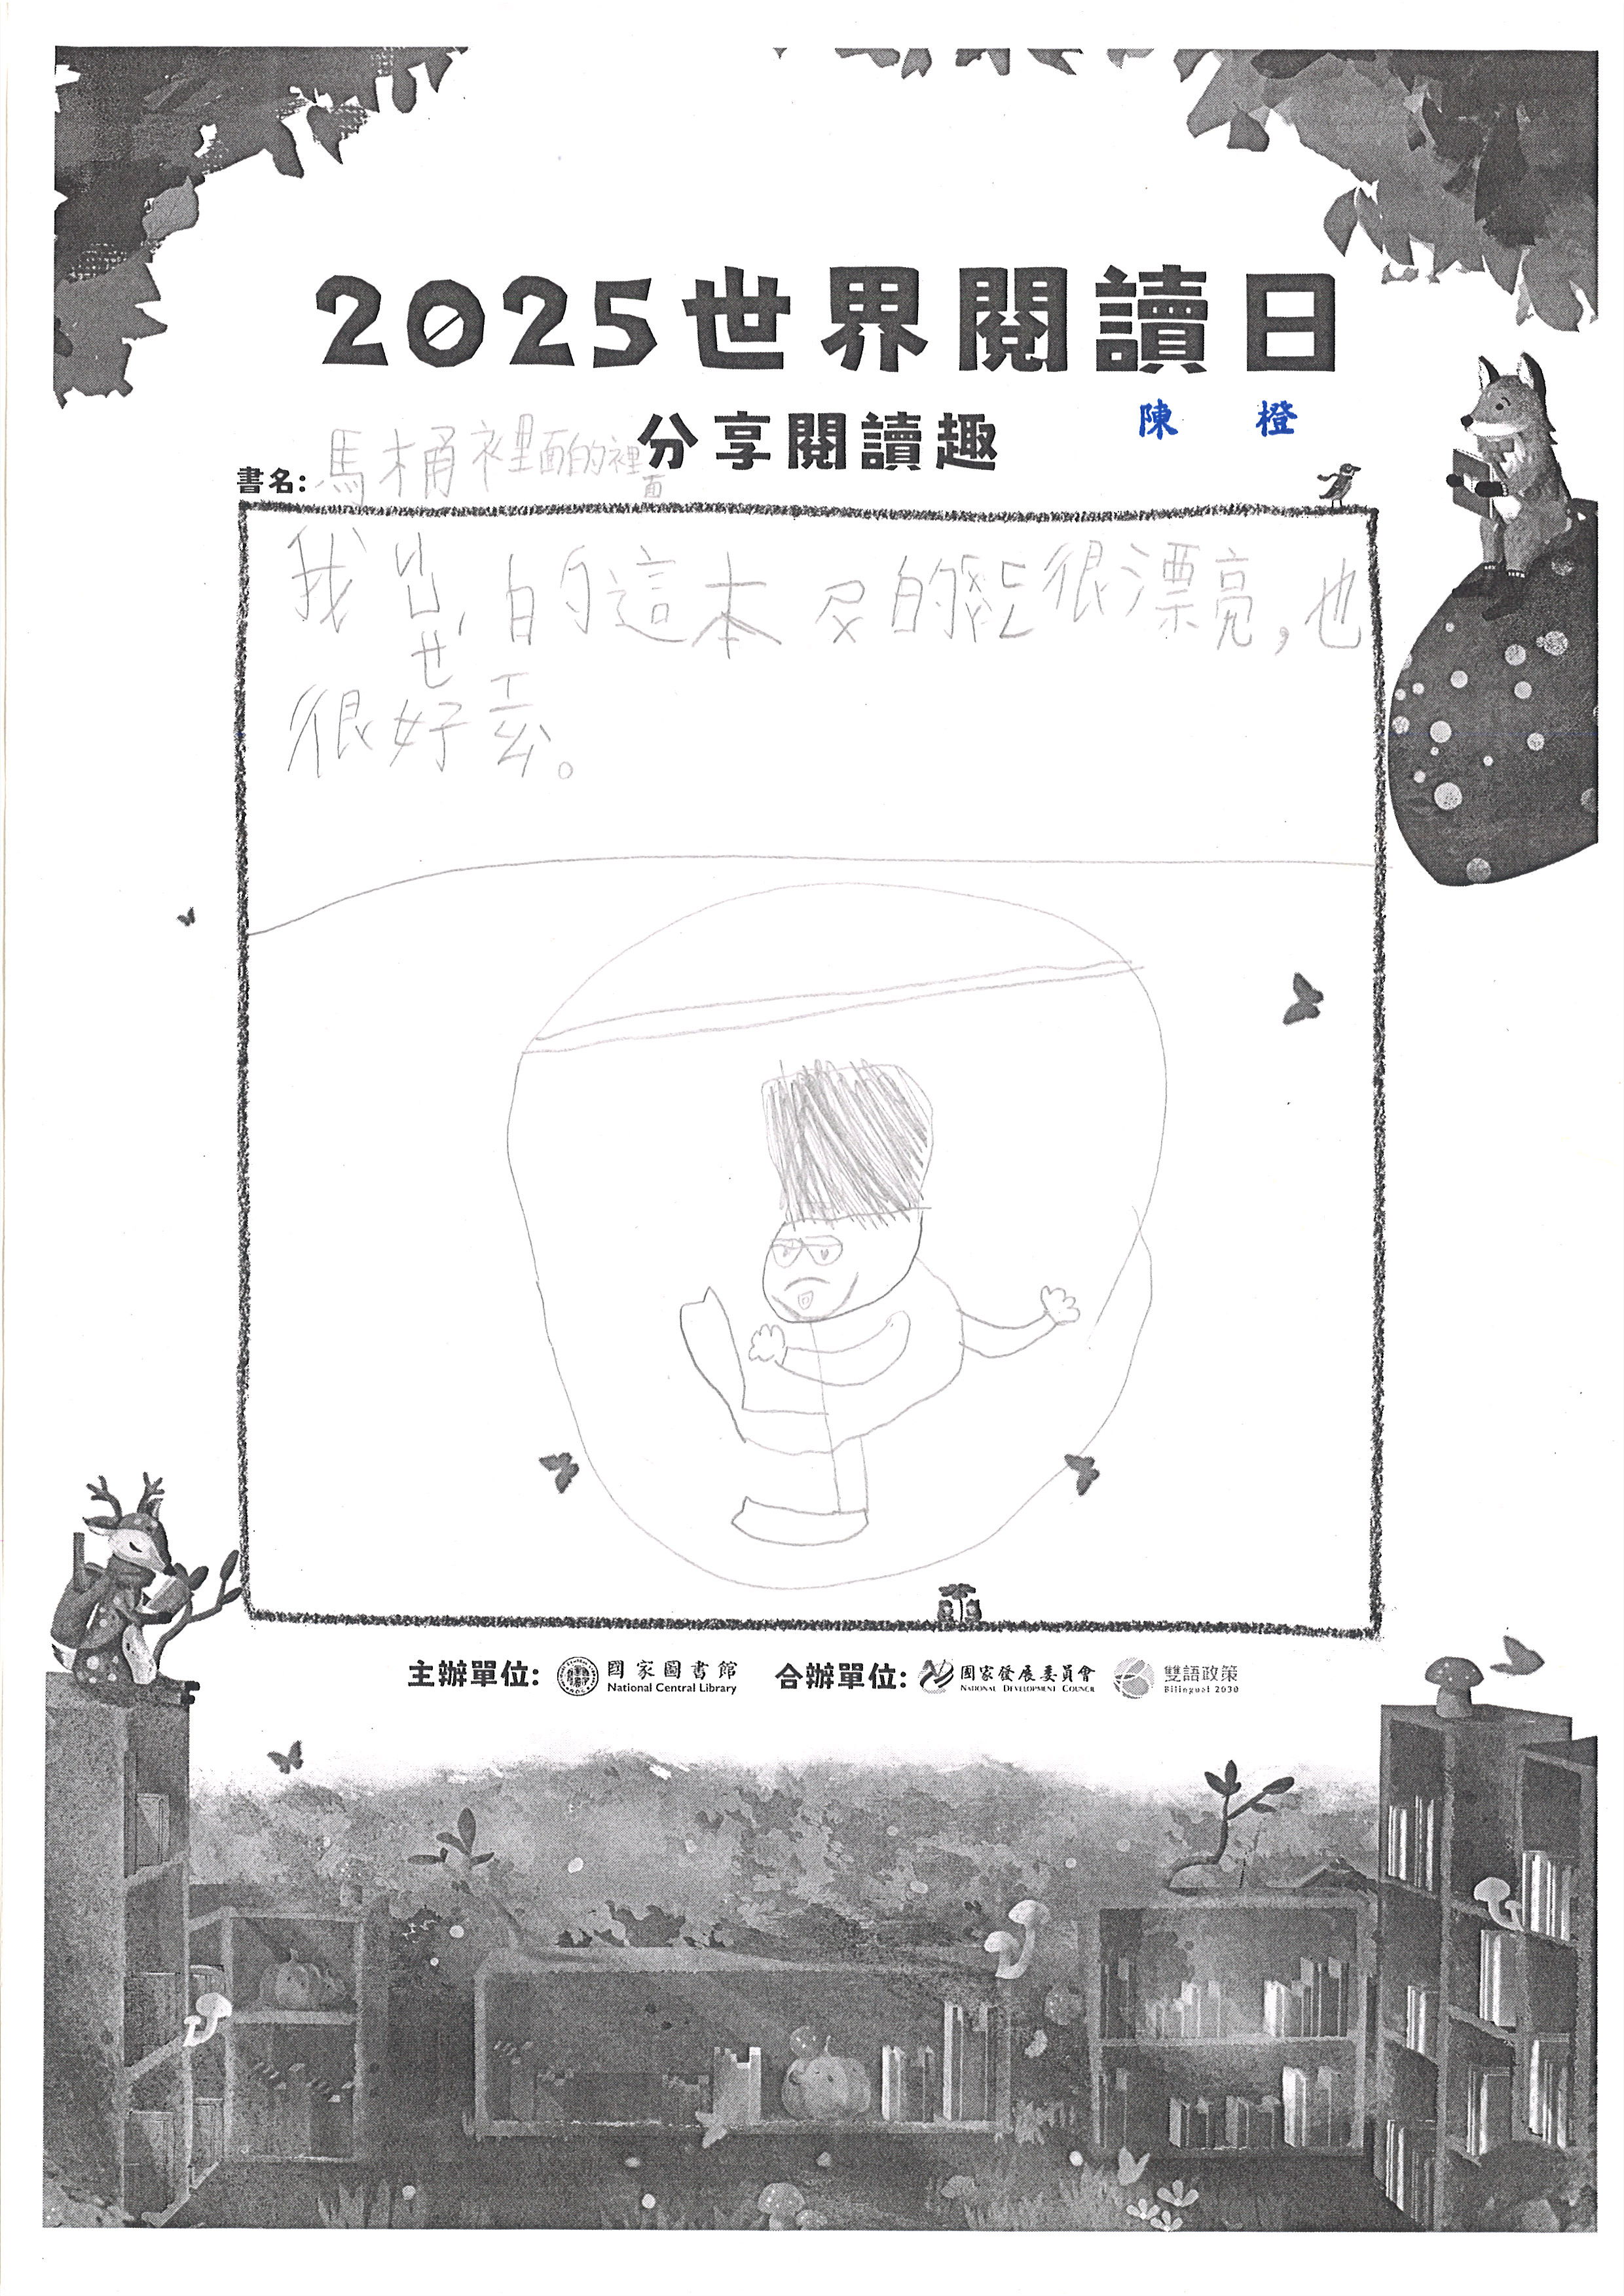 2025世界閱讀日
陳 橙
分享閱讀趣
書名: 馬桶裡面的裡面
的這本 的 很漂亮,也
很好 。
主辦單位: 國家圖書館 National Central Library 合辦單位: 國家發展委員會 National Development Council 雙語政策 Bilingual 2030